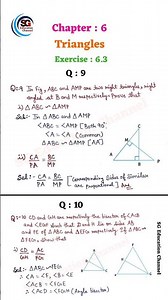 SG
Chapter : 6
Triangles
Exercise : 6.3
Q : 9
Q=9 In Fig, ABC and AMP are two right triangles, right
angled at B and M respectively. Prove that
i) △ABC ~ △AMP
Sol:- In △ABC and △AMP
<ABC = <AMP [Both 90°]
<A = <A (Common)
△ABC ~ △AMP [AA]
ii) CA/PA = BC/MP
Sol:- CA/PA = BC/MP [Corresponding Sides of Similar
are proportional] Ans
Q : 10
Q=10 CD and GH are respectively the bisectors of <ACB
and <EGF such that D and H lie on sides AB
and FE of △ABC and △EFG respectively. If △ABC ~
△FEG, show that
i) CD/GH = AC/FG
Sol:- △ABC ~ △FEG
∴ <A = <F, <B = <E
<ACB = <FGE
∴ <ACD = <FGH (Angle bisector)
SG Education Channel